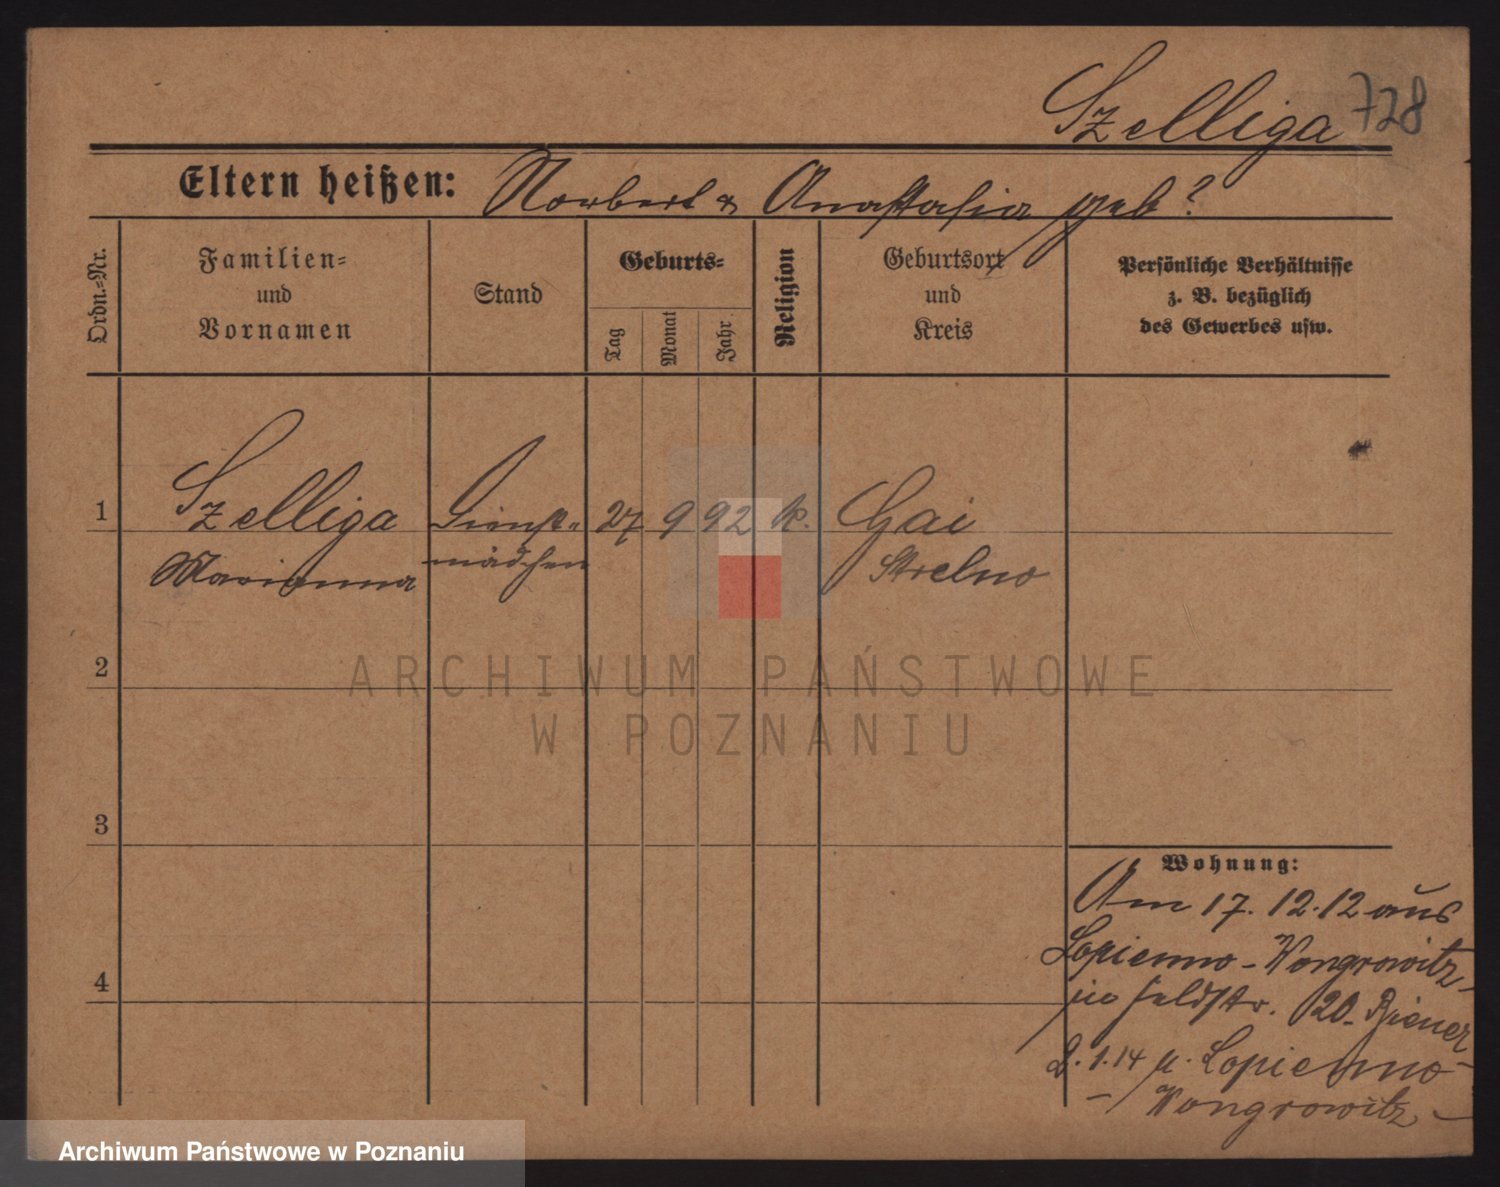 Szelliga 728
Eltern heißen: Norbert & Anastasia geb?
Ordn.-Nr.
Familien-
und
Vornamen
Stand
Geburts-
Tag
Monat
Jahr
Religion
Geburtsort
und
Kreis
Persönliche Verhältnisse
z. B. bezüglich
des Gewerbes usw.
1 Szelliga Dienst- 27 9 92 k. Gai
Marianna mädchen Strelno
2
3
4
Wohnung:
Am 17.12.12 aus
Lopienno - Wongrowitz -
Feldstr. 20.
2.1.14 n. Lopienno -
- Wongrowitz -
ARCHIWUM PAŃSTWOWE
W POZNANIU
Archiwum Państwowe w Poznaniu